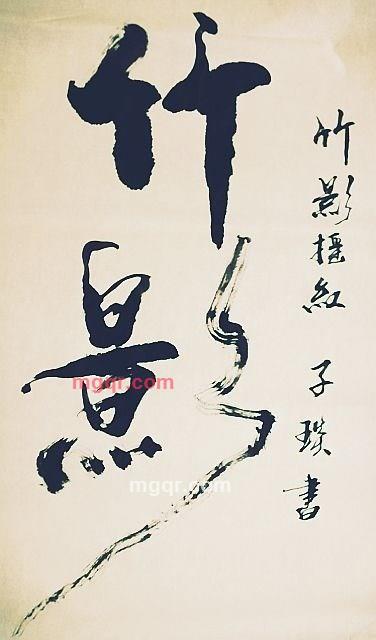 竹影
竹影搖紅 子 書
mgqr.com
mgqr.com